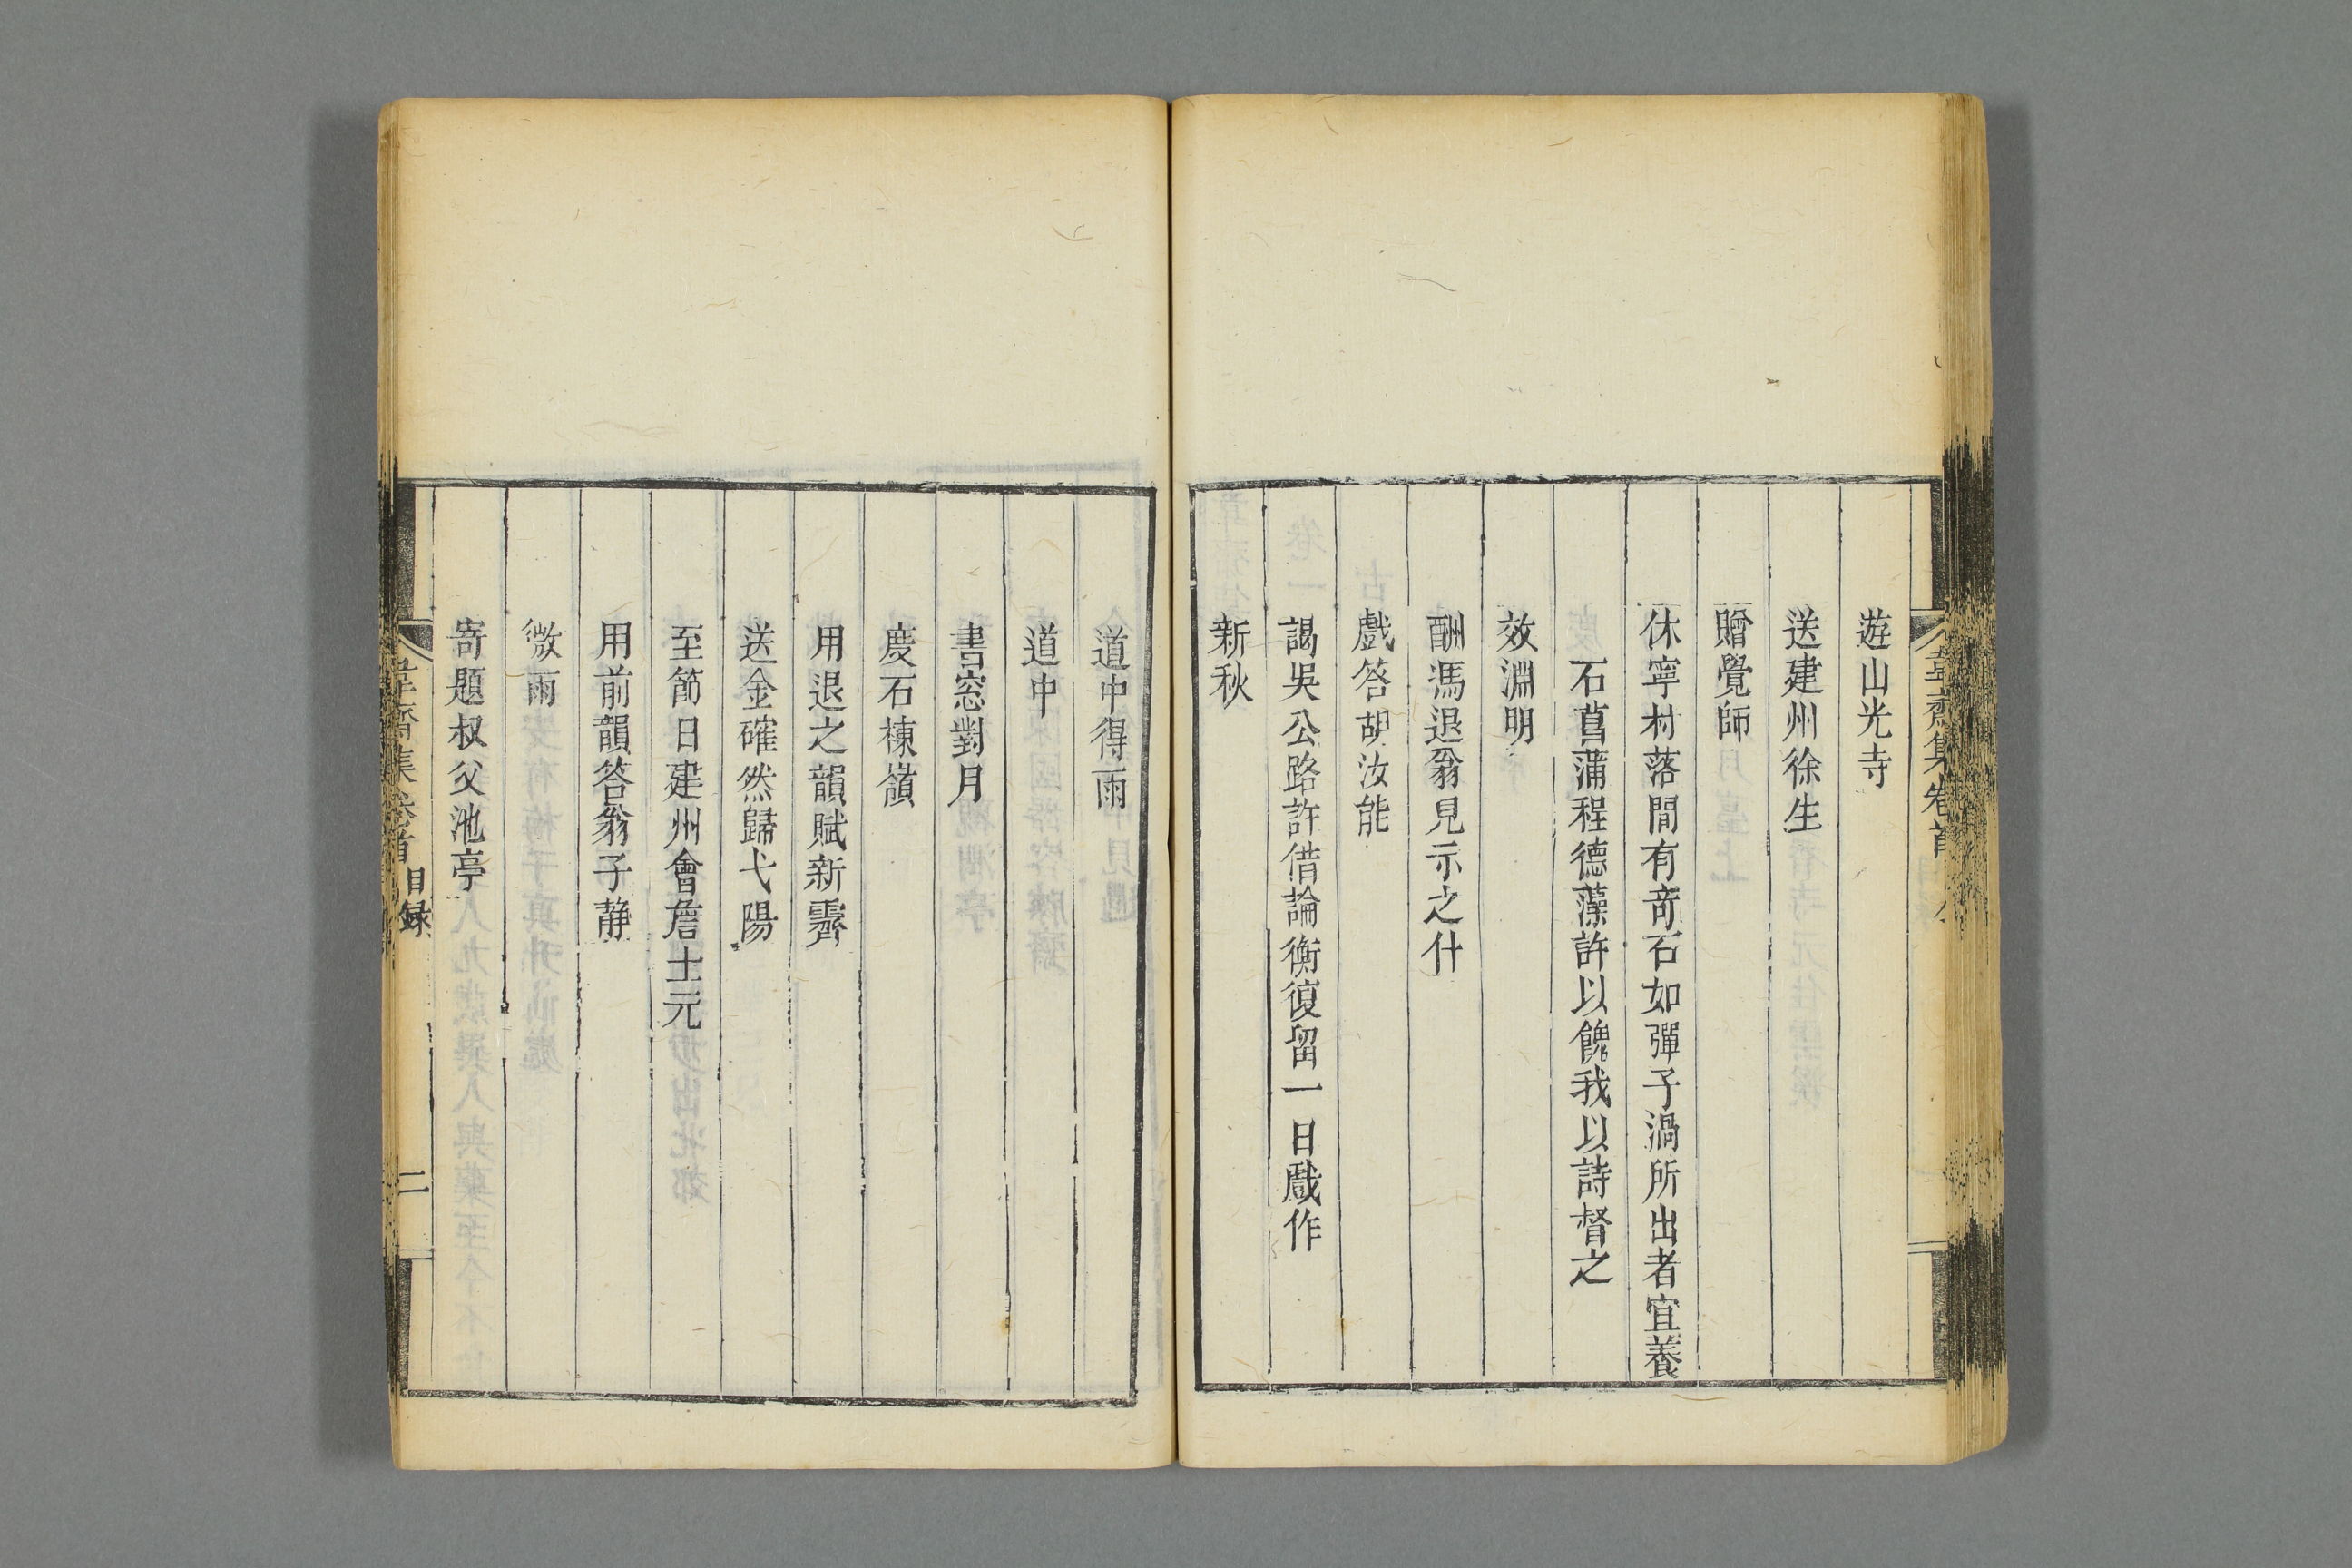 遊山光寺
送建州徐生
贈覺師
休寧村落間有竒石如彈子渦所出者宜養
石菖蒲程德藻許以餽我以詩督之
效淵明
酬馮退翁見示之什
戲答胡汝能
謁吳公路許借論衡復留一日戲作
新秋
道中得雨
道中
書窓對月
度石棟嶺
用退之韻賦新霽
送金確然歸弋陽
至節日建州會詹士元
用前韻答翁子静
微雨
寄題叔父池亭
韋齋集卷首 目録 二